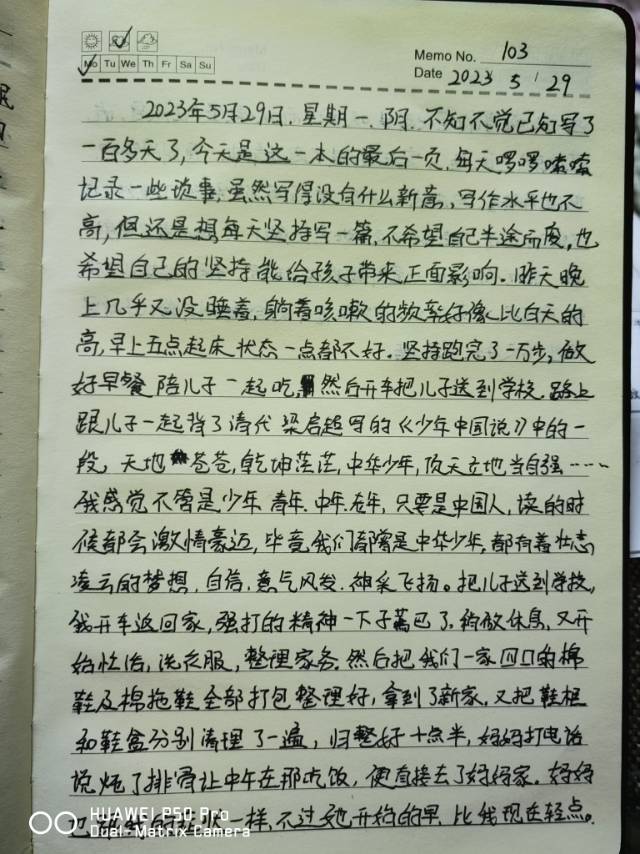 Memo No. 103
Mo Tu We Th Fr Sa Su
Date 2023 5 / 29
2023年5月29日.星期一.阴.不知不觉已知写了
一百多天了,今天是这一本的最后一页,每天啰啰嗦嗦
记录一些琐事,虽然写得没有什么新意,写作水平也不
高,但还是想每天坚持写一篇,不希望自己半途而废,也
希望自己的坚持能给孩子带来正面影响.昨天晚
上几乎又没睡着,躺着咳嗽的频率好像比白天的
高,早上五点起床状态一点都不好.坚持跑完了一万步,做
好早餐陪儿子一起吃,然后开车把儿子送到学校.路上
跟儿子一起背了清代梁启超写的《少年中国说》中的一
段.天地苍苍,乾坤茫茫,中华少年,顶天立地当自强……
我感觉不管是少年.青年.中年.老年,只要是中国人,读的时
候都会激情豪迈,毕竟我们都曾是中华少年,都有着壮志
凌云的梦想,自信,意气风发.神采飞扬.把儿子送到学校,
我开车返回家,强打的精神一下子蔫巴了.稍做休息,又开
始忙活,洗衣服,整理家务.然后把我们一家四口的棉
鞋及棉拖鞋全部打包整理好,拿到了新家,又把鞋柜
和鞋盒分别清理了一遍,归整好十点半,妈妈打电话
说炖了排骨让中午在那吃饭,便直接去了妈妈家.妈妈
也跟我的症状一样,不过她开始的早.比我现在轻点。
HUAWEI P50 Pro
Dual-Matrix Camera